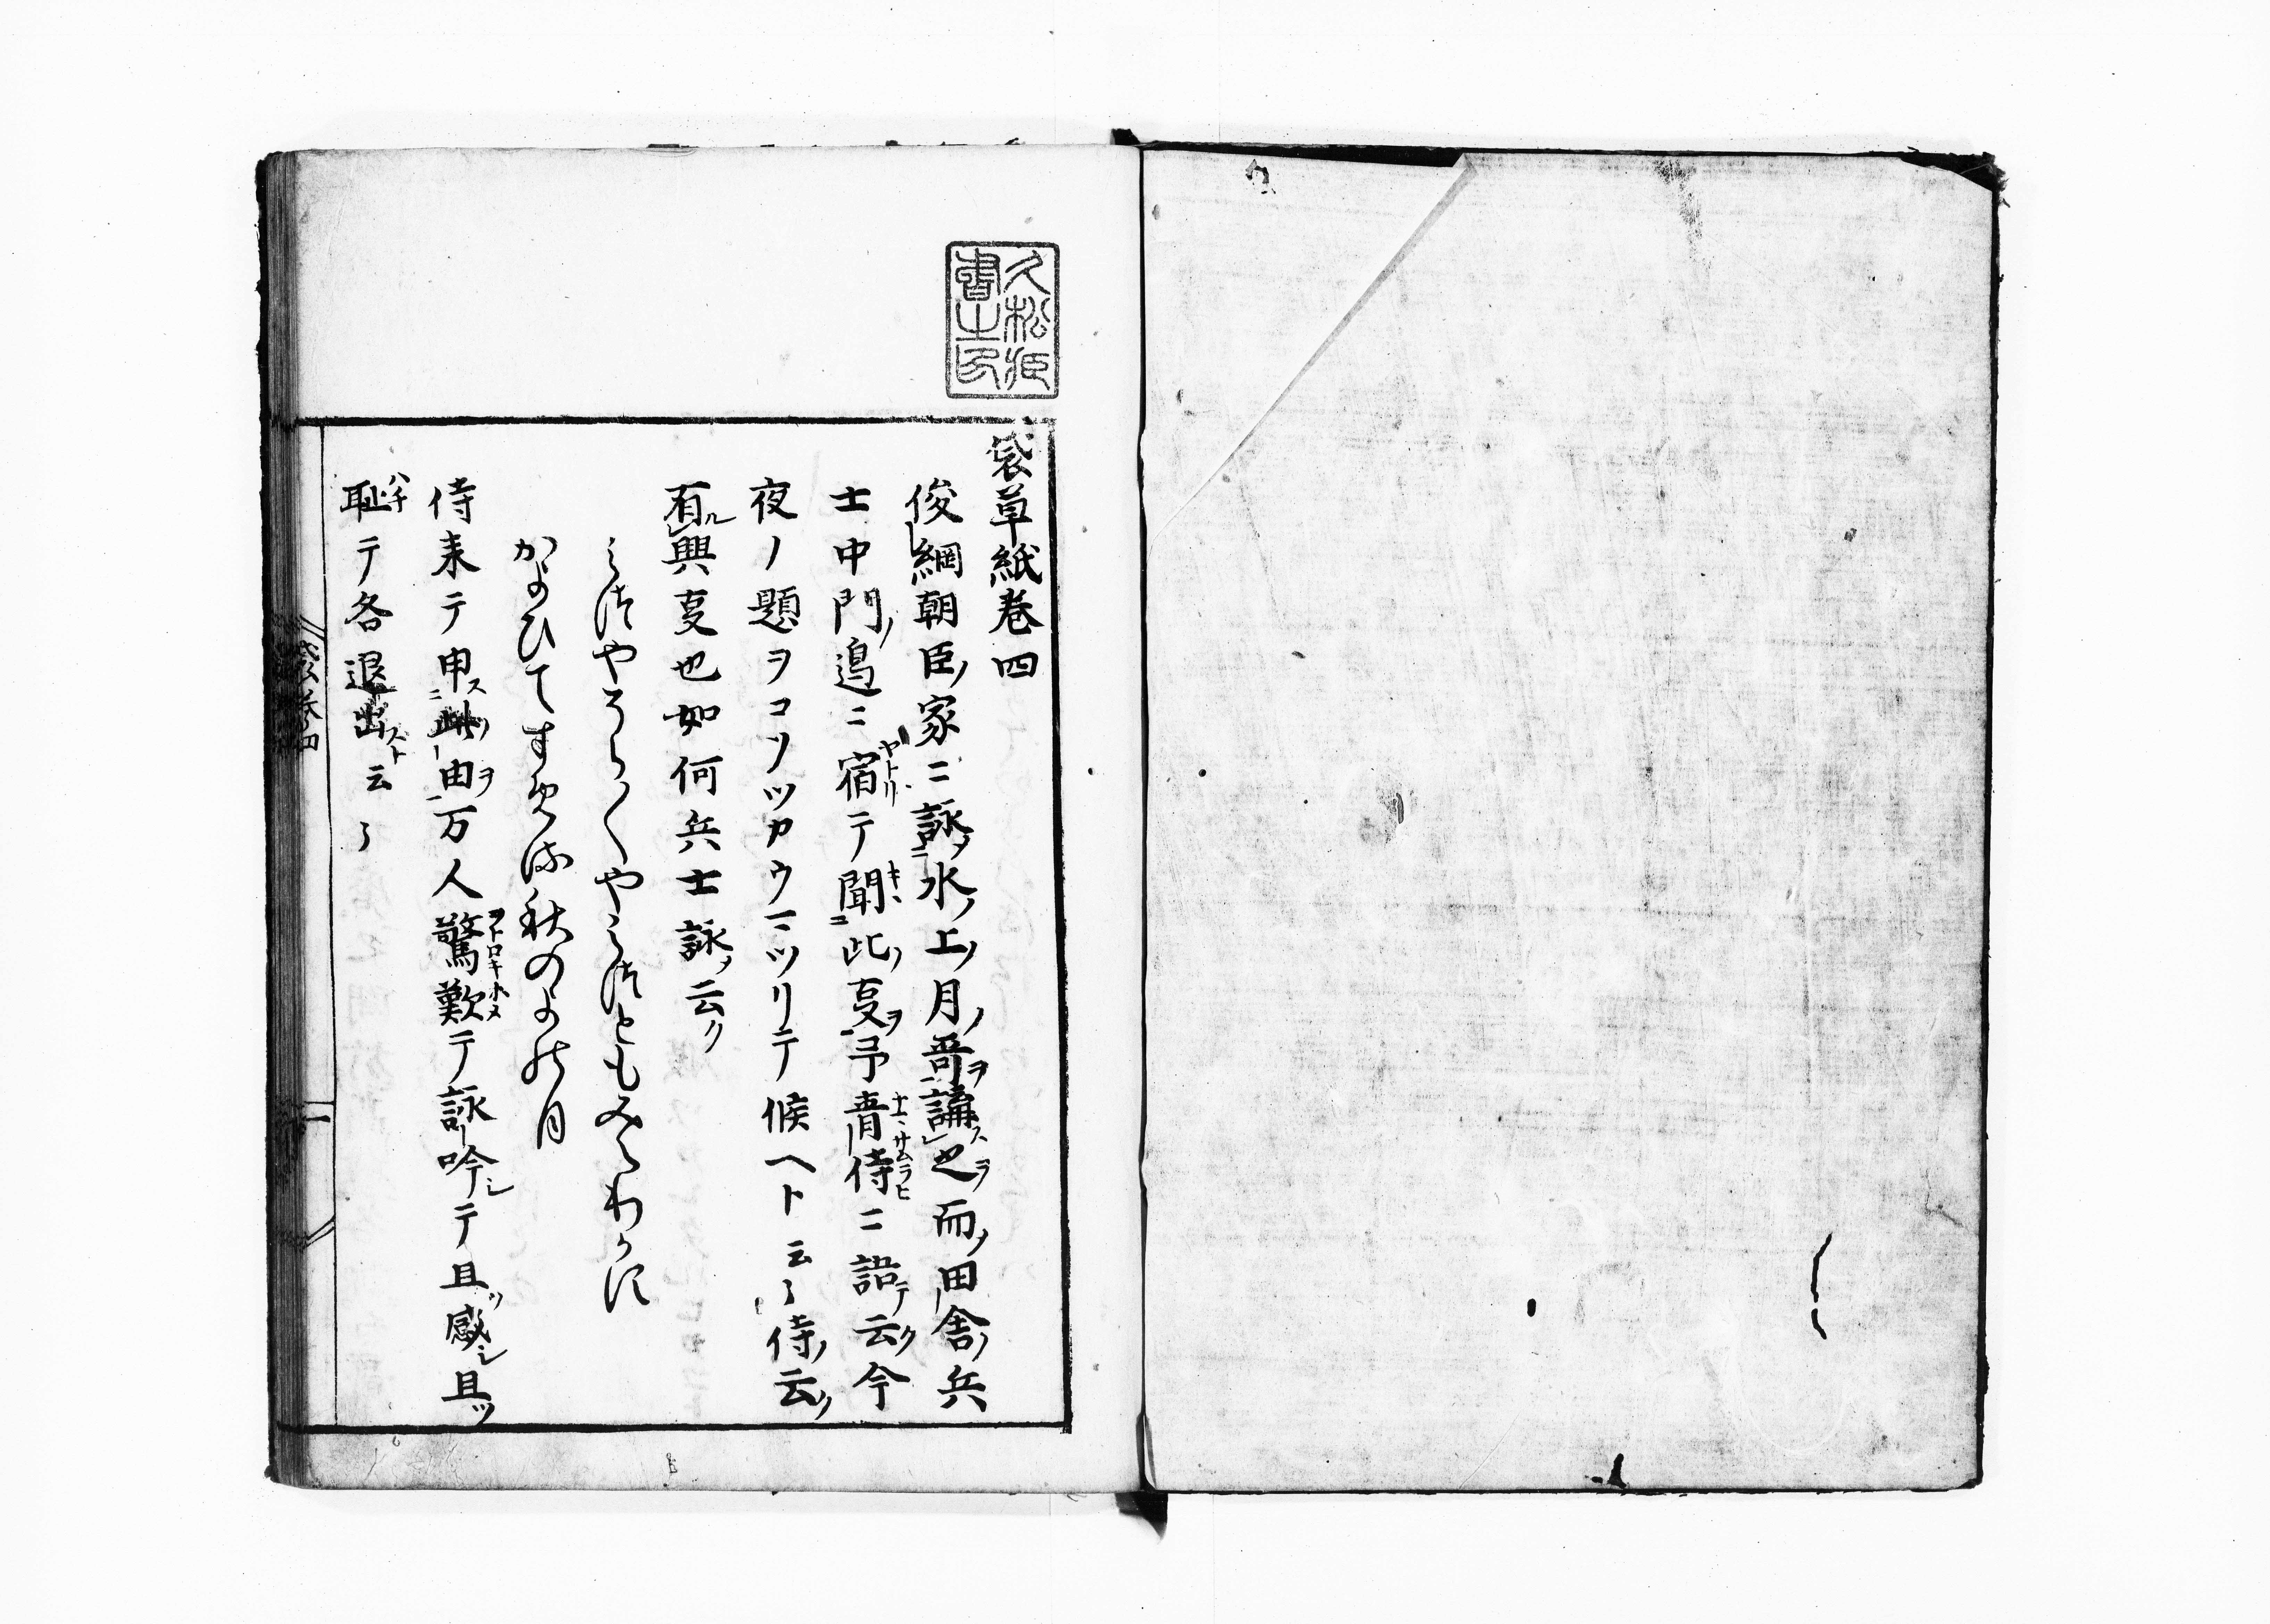 久松姫
書之印
袋草紙巻四
俊綱朝臣ノ家ニ詠ノ水ノ上ノ月ノ哥ヲ講ス之ヲ而ノ田舎ノ兵
士中門ノ邉ニ宿テ聞此ノ㕝ヲ予青侍ニ語テ云ク今
夜ノ題ヲコソツカウマツリテ候ヘト云々侍ノ云ク
有ル興㕝也如何兵士詠ノ云ク
みつやそらそらやみつともみえわかす
かよひてすめる秋のよの月
侍来テ申ス此ノ由ヲ万人驚歎テ詠吟シテ且ツ感シ且ツ
恥テ各退出スト云々
袋巻四
一